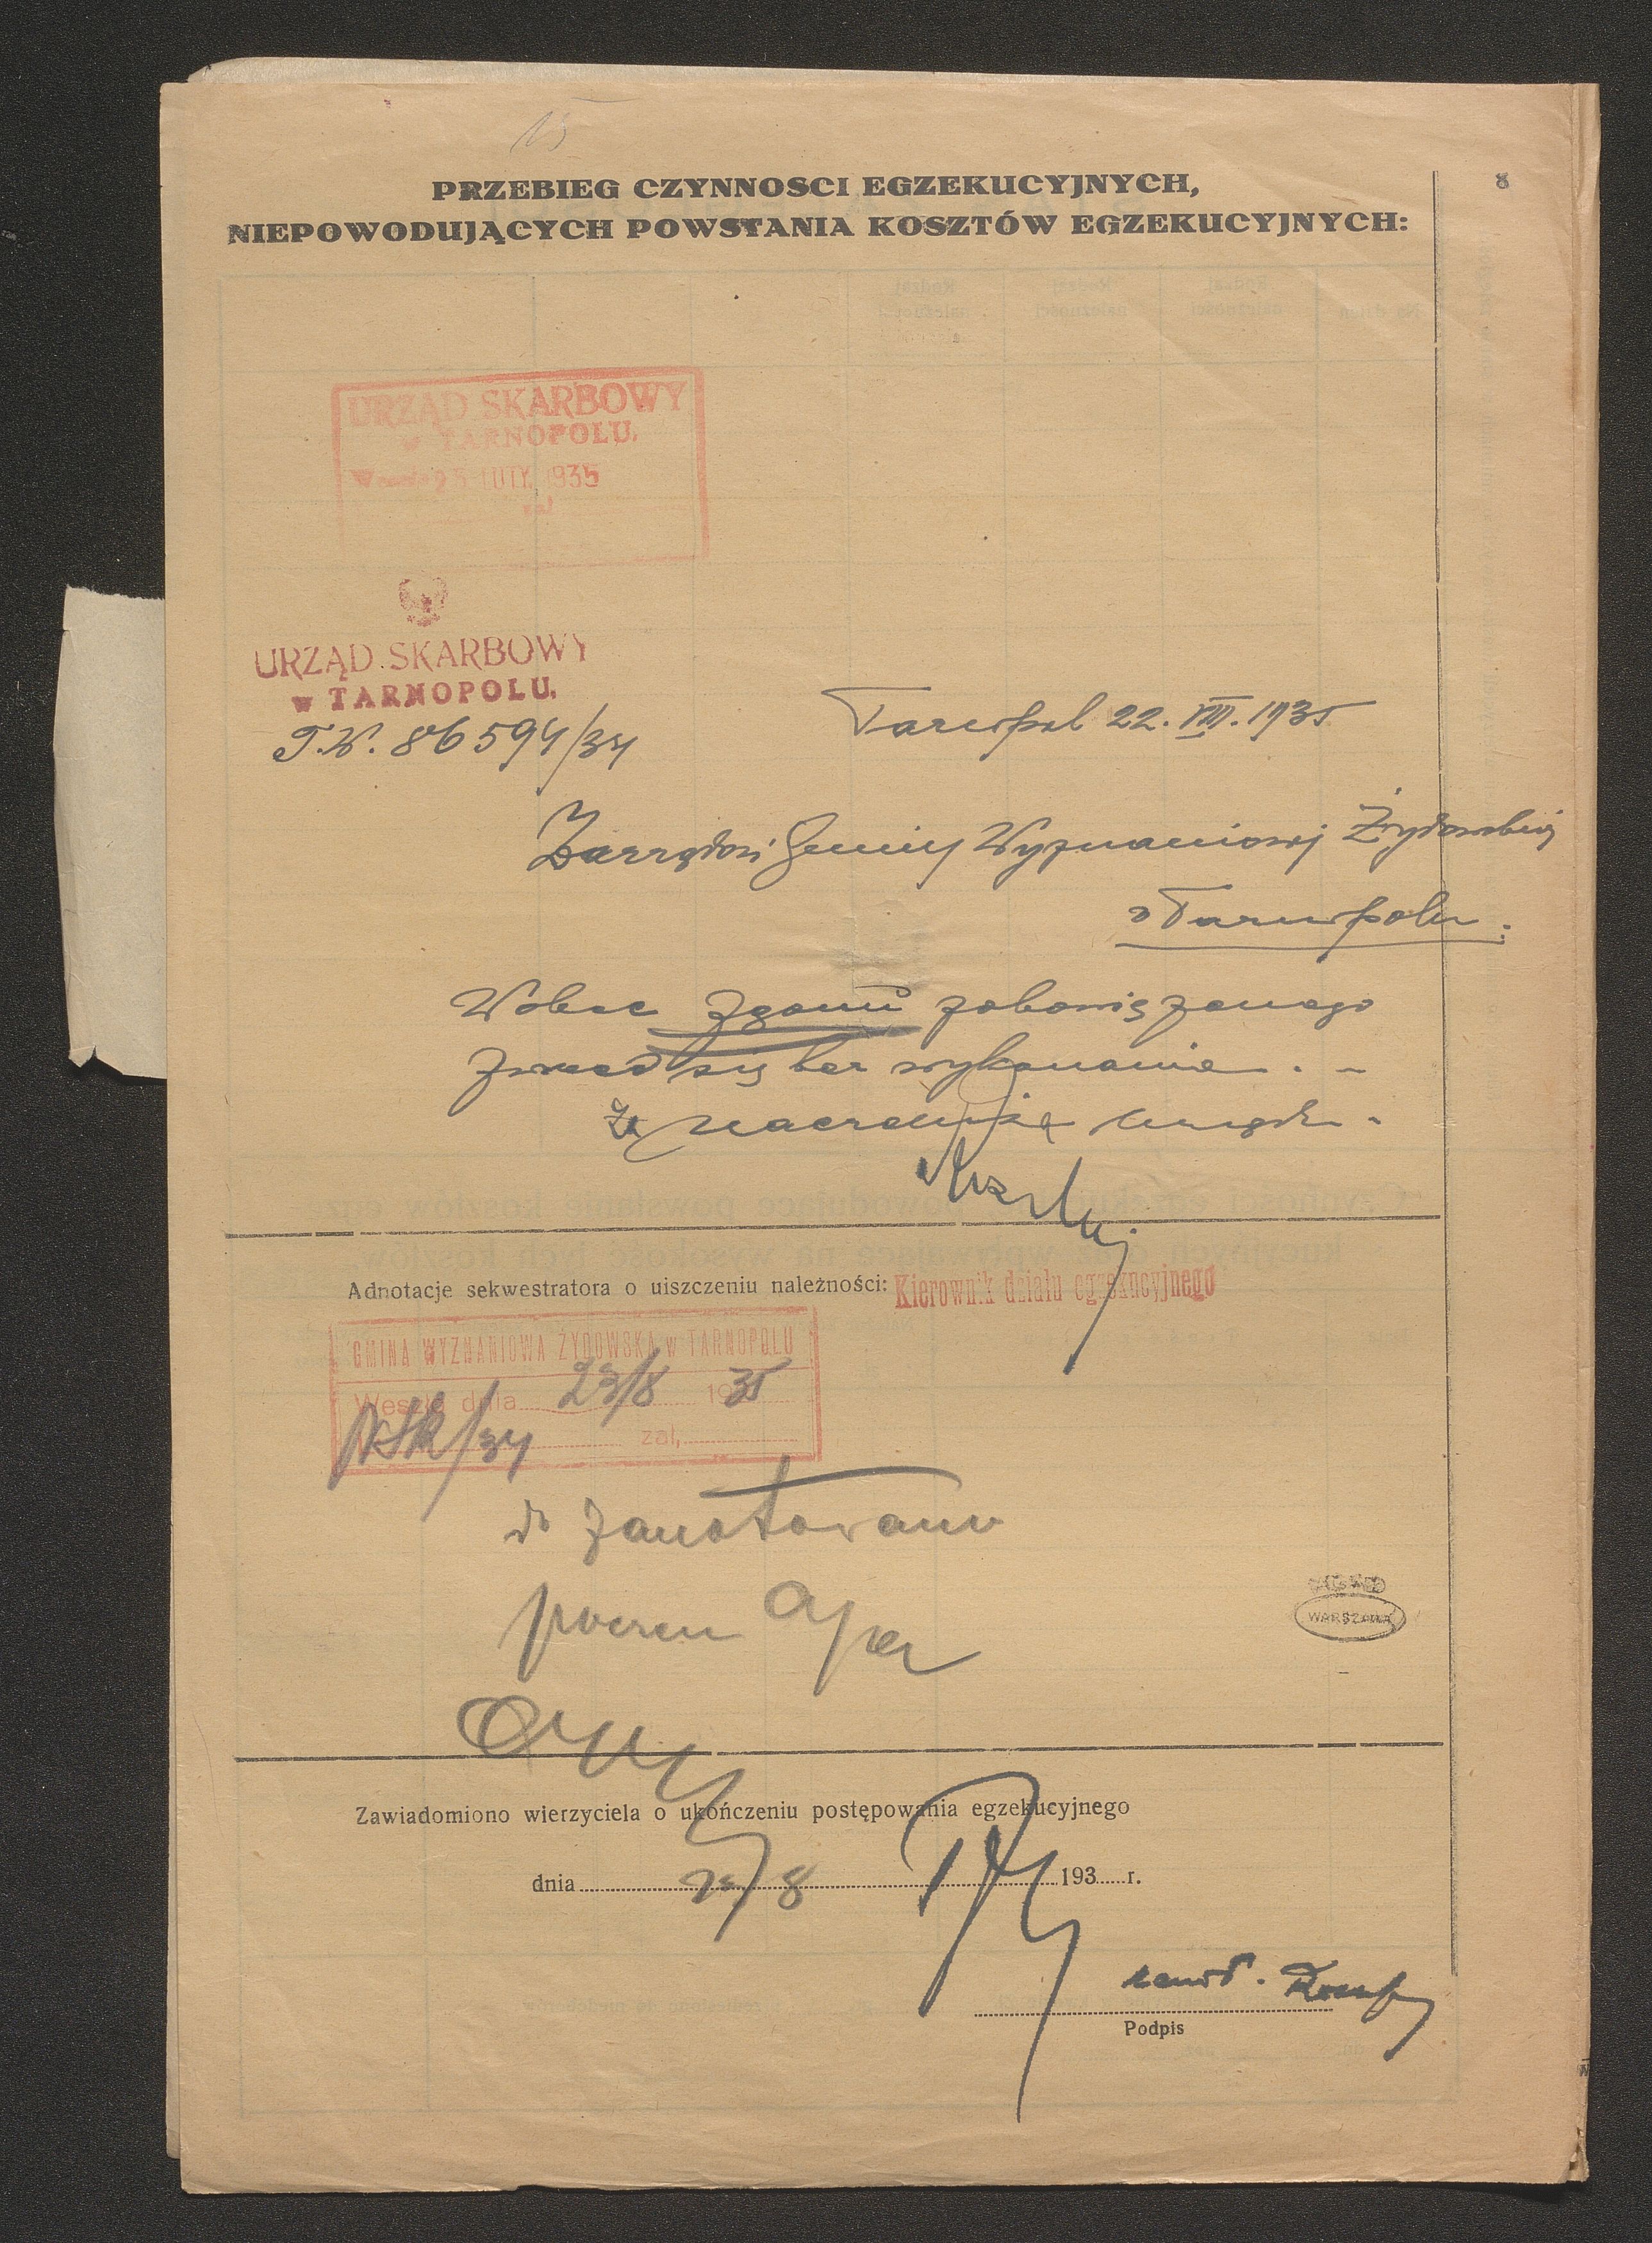 15
8
PRZEBIEG CZYNNOSCI EGZEKUCYJNYCH,
NIEPOWODUJĄCYCH POWSTANIA KOSZTÓW EGZEKUCYJNYCH:
URZĄD SKARBOWY
w TARNOPOLU.
LUTY 1935
zał
URZĄD SKARBOWY
w TARNOPOLU.
T.W. 86594/34
Tarnopol 22. VIII. 1935
Zarządowi Gminy Wyznaniowej Żydowskiej
w Tarnopolu.
Wobec zgonu zobowiązanego
zwraca się bez wykonania. -
Za Naczelnika Urzędu.
Adnotacje sekwestratora o uiszczeniu należności:
Kierownik działu egzekucyjnego
GMINA WYZNANIOWA ŻYDOWSKA w TARNOPOLU
Weszło dnia 23/8 1935
/34 zał,
do zanotowania
poczem a/a
WARSZAWA
Zawiadomiono wierzyciela o ukończeniu postępowania egzekucyjnego
dnia 193 r.
Podpis